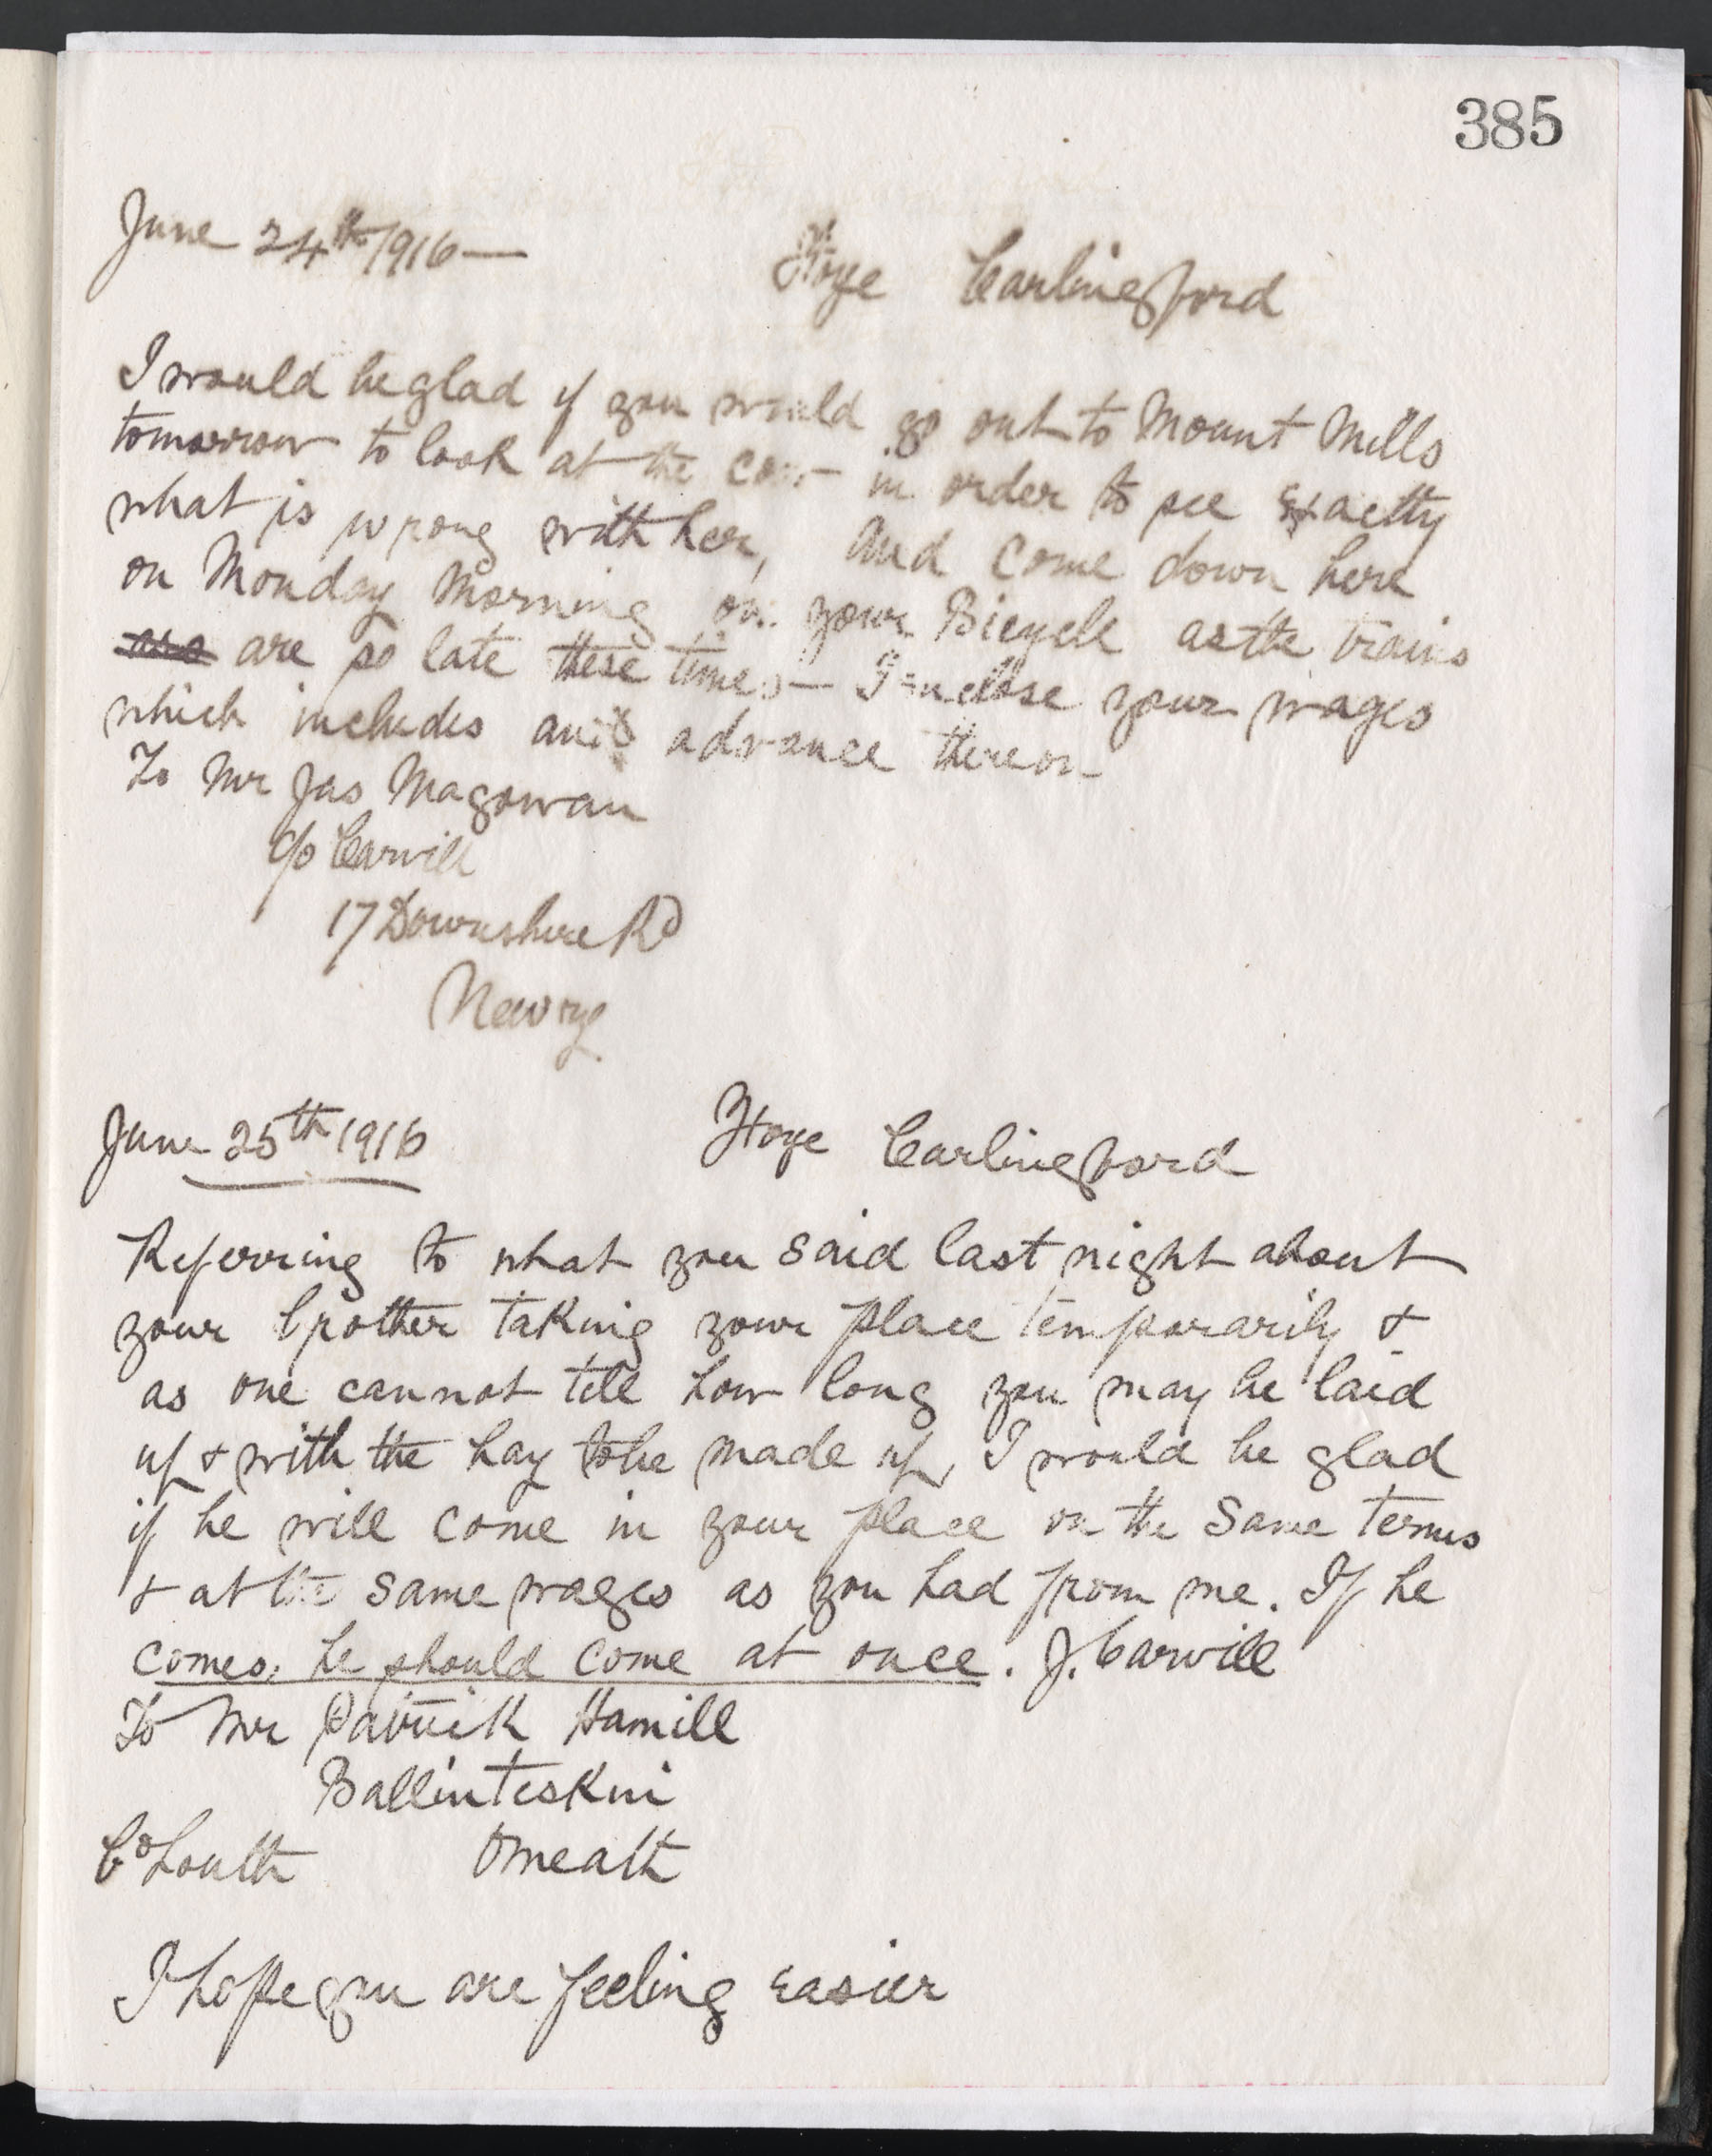 385
June 24th 1916 —
Hoye Carlingford
I would be glad if you would go out to Mount Mills
tomorrow to look at the cow in order to see Exactly
what is wrong with her, and come down here
on Monday Morning on your Bicycle as the trains
are so late these times — I Enclose your wages
which includes advance thereon
To Mr Jas Magowan
c/o Carvill
17 Downshire Rd
Newry
June 25th 1916
Hoye Carlingford
Referring to what you said last night about
your brother taking your place temporarily &
as one cannot tell how long you may be laid
up & with the hay to be made up, I would be glad
if he will come in your place on the same terms
& at the same wages as you had from me. If he
comes, he should come at once. J. Carvill
To Mr Patrick Hamill
Ballinteskin
Co Louth Omeath
I hope you are feeling easier